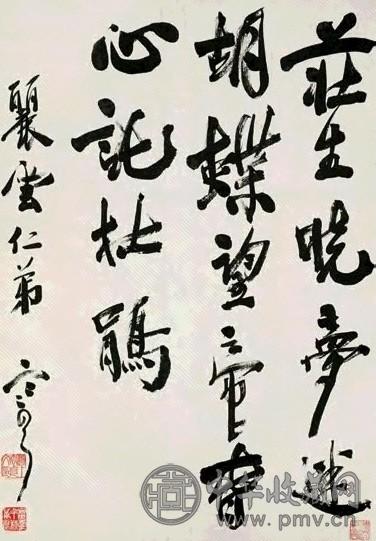 莊生曉夢迷
胡蝶望帝春
心託杜鵑
雲仁弟
中华收藏网
www.pmv.cn